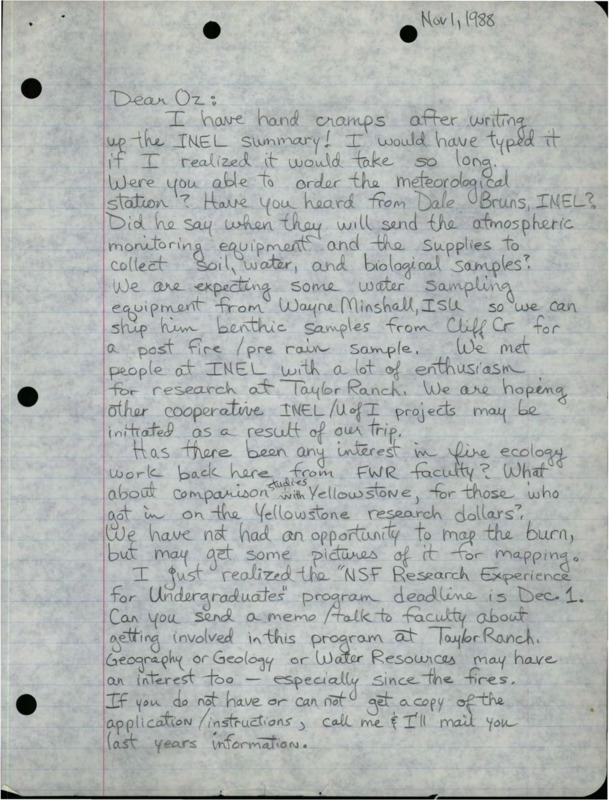 Nov 1, 1988
Dear Oz:
I have hand cramps after writing
up the INEL summary! I would have typed it
if I realized it would take so long.
Were you able to order the meteorological
station? Have you heard from Dale Bruns, INEL?
Did he say when they will send the atmospheric
monitoring equipment and the supplies to
collect soil, water, and biological samples?
We are expecting some water sampling
equipment from Wayne Minshall, ISU so we can
ship him benthic samples from Cliff Cr for
a post fire/pre rain sample. We met
people at INEL with a lot of enthusiasm
for research at Taylor Ranch. We are hoping
other cooperative INEL/UofI projects may be
initiated as a result of our trip.
Has there been any interest in fire ecology
work back here from FWR faculty? What
about comparison studies with Yellowstone, for those who
got in on the Yellowstone research dollars?
We have not had an opportunity to map the burn,
but may get some pictures of it for mapping.
I just realized the "NSF Research Experience
for Undergraduates" program deadline is Dec. 1.
Can you send a memo/talk to faculty about
getting involved in this program at Taylor Ranch.
Geography or Geology or Water Resources may have
an interest too — especially since the fires.
If you do not have or can not get a copy of the
application/instructions, call me & I'll mail you
last years information.